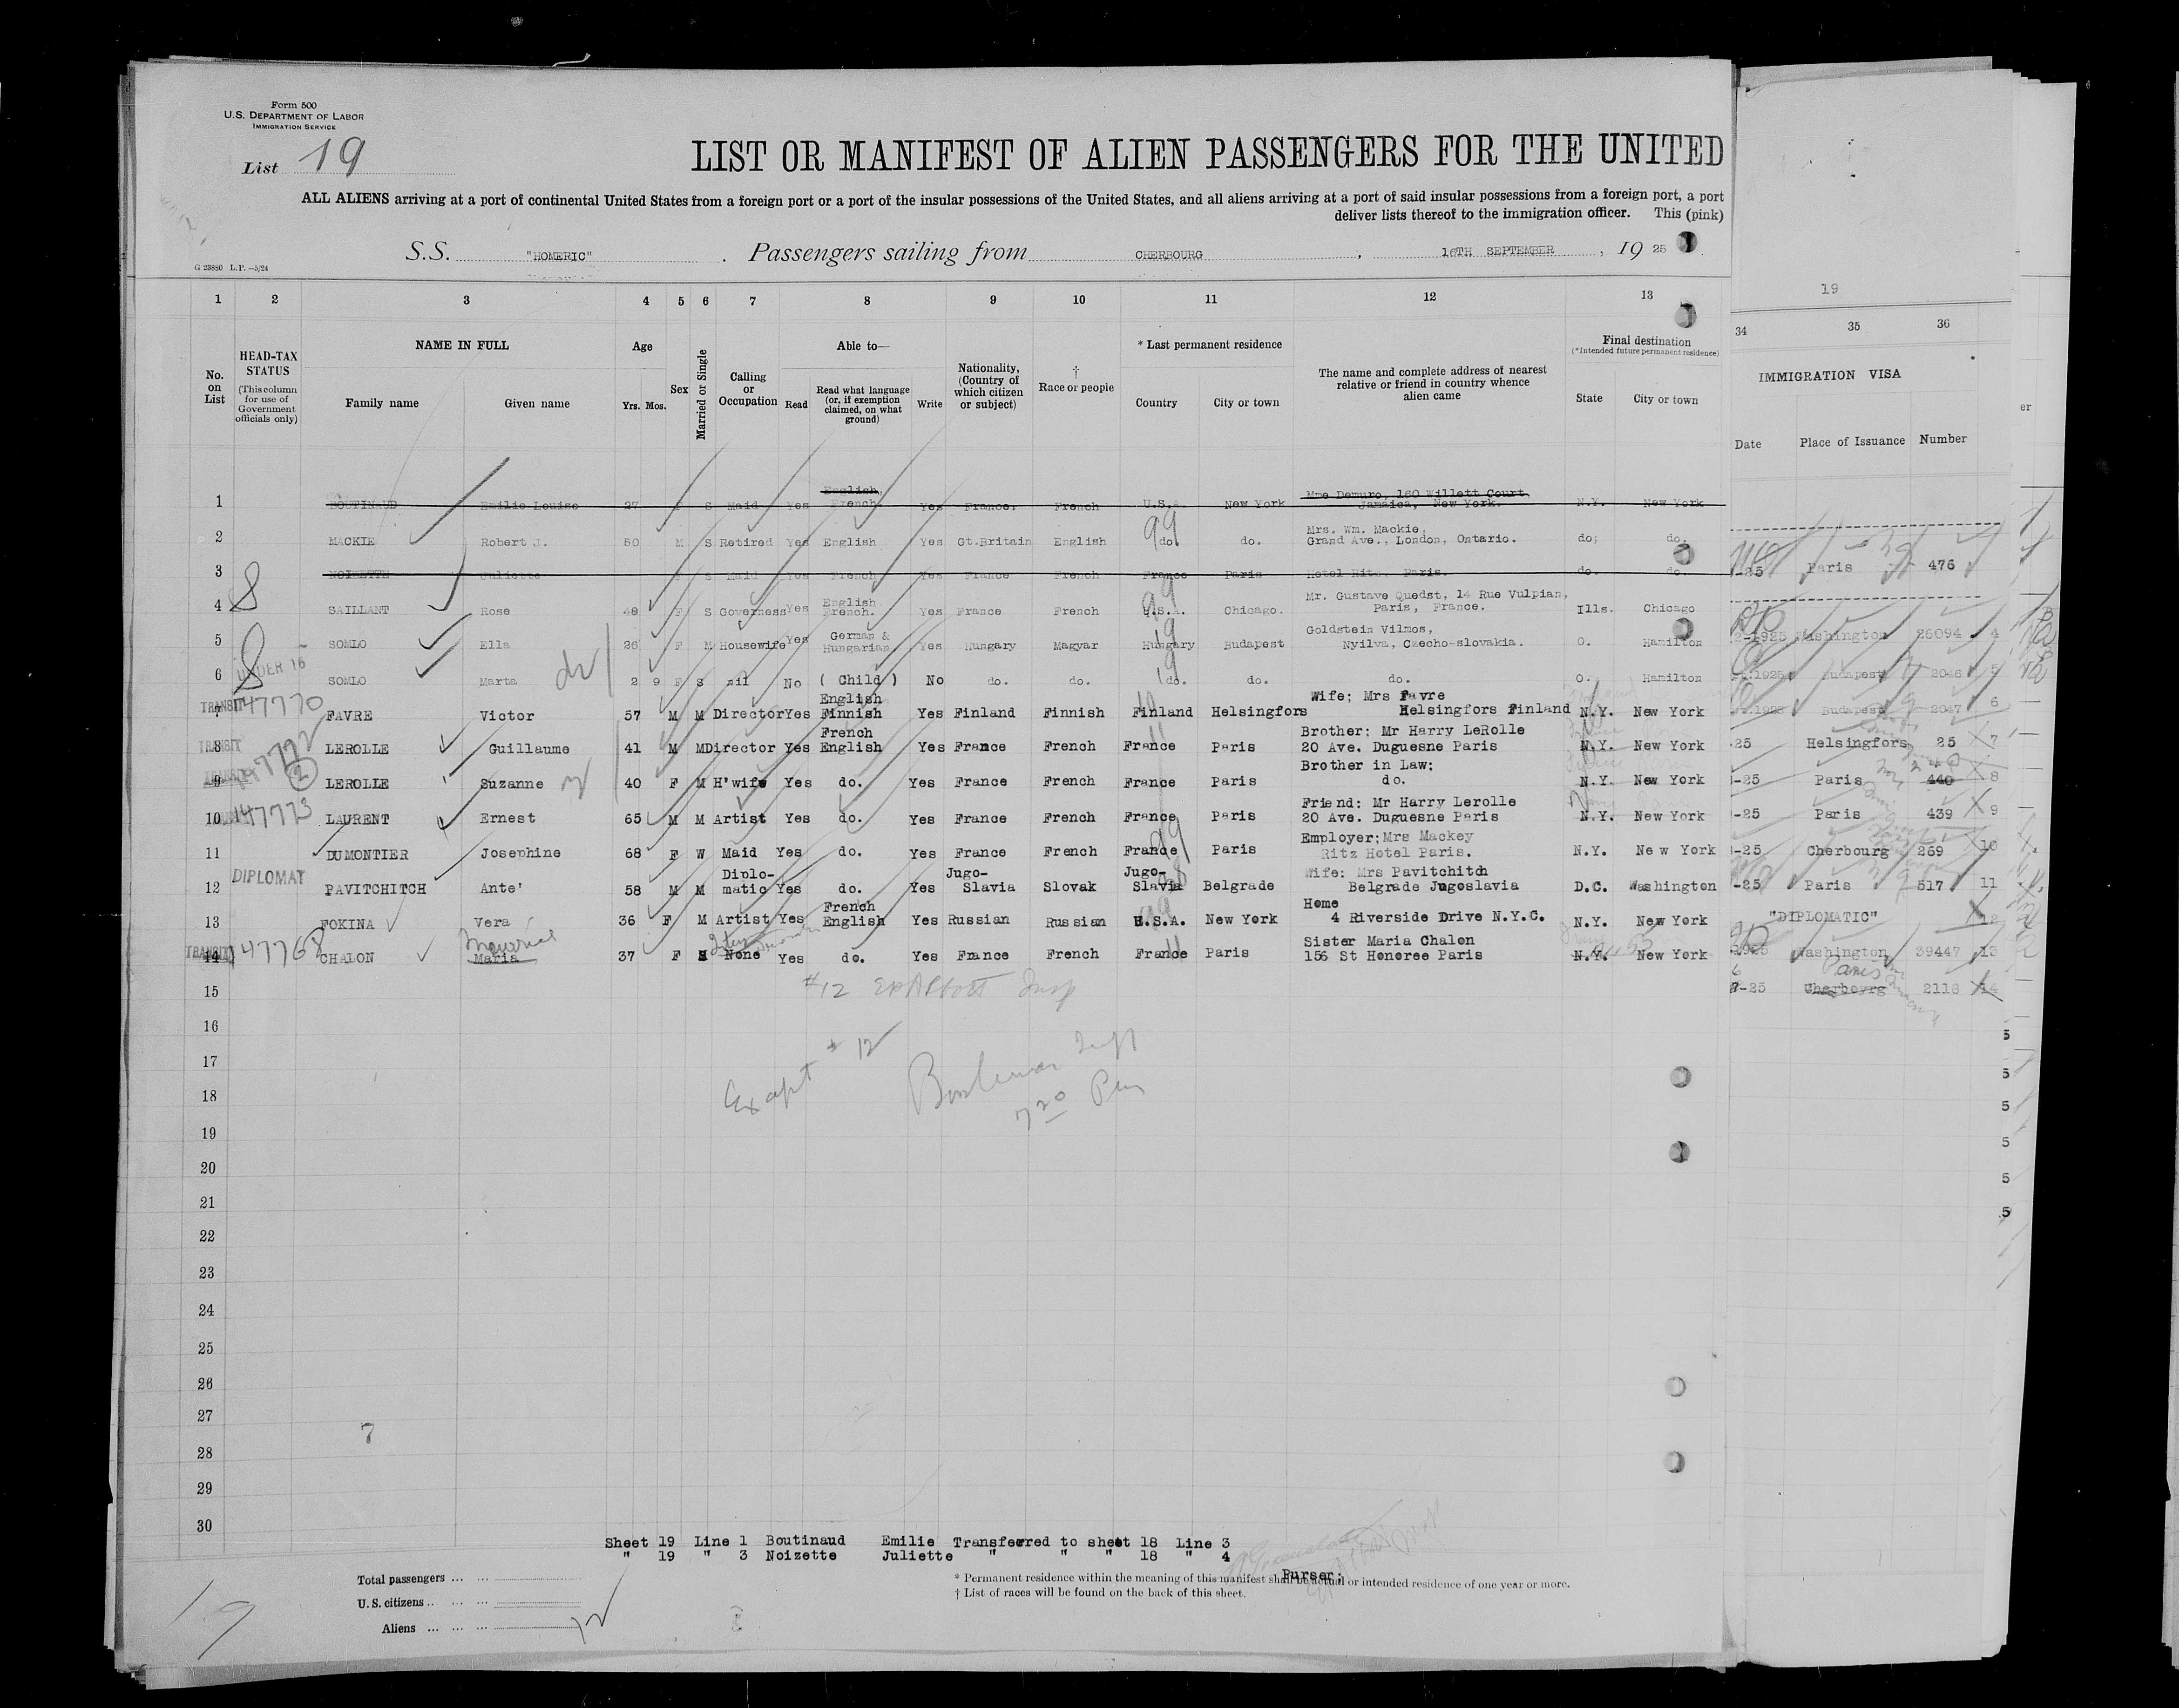 Form 500
U.S. DEPARTMENT OF LABOR
IMMIGRATION SERVICE
List 19
LIST OR MANIFEST OF ALIEN PASSENGERS FOR THE UNITED
ALL ALIENS arriving at a port of continental United States from a foreign port or a port of the insular possessions of the United States, and all aliens arriving at a port of said insular possessions from a foreign port, a port
deliver lists thereof to the immigration officer. This (pink)
S.S. "HOMERIC". Passengers sailing from CHERBOURG, 16TH SEPTEMBER, 19 25
G 23880 L.P.—5/24
19
1 2 3 4 5 6 7 8 9 10 11 12 13 34 35 36
No. on List
HEAD-TAX STATUS (This column for use of Government officials only)
NAME IN FULL
Family name Given name
Age
Yrs. Mos.
Sex
Married or Single
Calling or Occupation
Able to—
Read
Read what language (or, if exemption claimed, on what ground)
Write
Nationality, (Country of which citizen or subject)
† Race or people
* Last permanent residence
Country City or town
The name and complete address of nearest relative or friend in country whence alien came
Final destination
(*Intended future permanent residence)
State City or town
IMMIGRATION VISA
Date Place of Issuance Number
1 BOUTINAUD Emilie Louise 27 F S Maid Yes English, French. Yes France. French U.S.A. New York Mme Demuro, 160 Willett Court Jamaica, New York. N.Y. New York
2 MACKIE Robert J. 50 M S Retired Yes English Yes Gt.Britain English do. do. Mrs. Wm. Mackie, Grand Ave., London, Ontario. do; do.
3 NOIZETTE Juliette F S Maid Yes French Yes France French France Paris Hotel Ritz, Paris. do. do.
-25 Paris 476
4 SAILLANT Rose 48 F S Governess Yes English French. Yes France French U.S.A. Chicago. Mr. Gustave Quedst, 14 Rue Vulpian, Paris, France. Ills. Chicago
5 SOMLO Ella 26 F M Housewife Yes German & Hungarian Yes Hungary Magyar Hungary Budapest Goldstein Vilmos, Nyilva, Czecho-slovakia. O. Hamilton
2-1925 Washington 26094 4
UNDER 16
6 SOMLO Marta 2 9 F S nil No ( Child ) No do. do. do. do. do. O. Hamilton
1925 Budapest 2046 5
TRANSIT 147770
7 FAVRE Victor 57 M M Director Yes English Finnish Yes Finland Finnish Finland Helsingfors Wife; Mrs Favre Helsingfors Finland N.Y. New York
1925 Budapest 2047 6
TRANSIT
8 LEROLLE Guillaume 41 M M Director Yes French English Yes France French France Paris Brother; Mr Harry LeRolle 20 Ave. Duguesne Paris N.Y. New York
-25 Helsingfors 25 7
9 LEROLLE Suzanne 40 F M H'wife Yes do. Yes France French France Paris Brother in Law; do. N.Y. New York
-25 Paris 440 8
147773
10 LAURENT Ernest 65 M M Artist Yes do. Yes France French France Paris Friend: Mr Harry Lerolle 20 Ave. Duguesne Paris N.Y. New York
-25 Paris 439 9
11 DUMONTIER Josephine 68 F W Maid Yes do. Yes France French France Paris Employer; Mrs Mackey Ritz Hotel Paris. N.Y. New York
-25 Cherbourg 269 10
DIPLOMAT
12 PAVITCHITCH Ante' 58 M M Diplo-matic Yes do. Yes Jugo-Slavia Slovak Jugo-Slavia Belgrade Wife: Mrs Pavitchitch Belgrade Jugoslavia D.C. Washington
-25 Paris 517 11
13 FOKINA Vera 36 F M Artist Yes French English Yes Russian Russian U.S.A. New York Home 4 Riverside Drive N.Y.C. N.Y. New York
"DIPLOMATIC" 12
TRANSIT 147768
14 CHALON Maria 37 F S None Yes do. Yes France French France Paris Sister Maria Chalon 156 St Honoree Paris N.Y. New York
1925 Washington 39447 13
Paris
-25 Cherboyrg 2118 14
15
#12
16
17
Except #12
18
7 20 Pm
19
20
21
22
23
24
25
26
27
7
28
29
30
Sheet 19 Line 1 Boutinaud Emilie Transferred to sheet 18 Line 3
" 19 " 3 Noizette Juliette " " " 18 " 4
Purser.
* Permanent residence within the meaning of this manifest shall be actual or intended residence of one year or more.
† List of races will be found on the back of this sheet.
Total passengers
U. S. citizens
Aliens 12
19